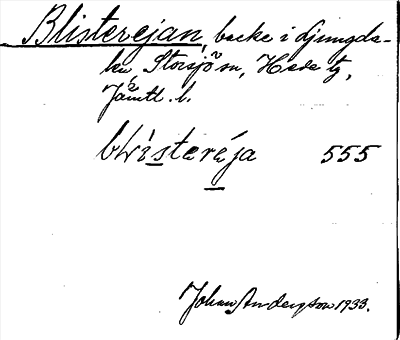 Blisterejan, backe i Ljungda-
len, Storsjö sn, Hede tg,
Jämtl. l.
blisteréja 555
Johan Anderson 1933.